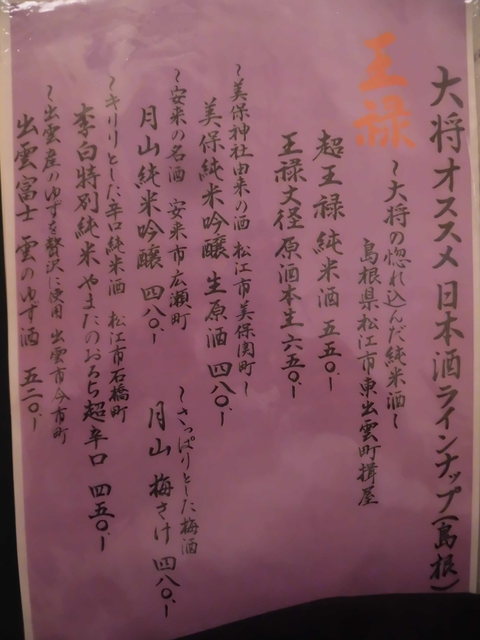 大将オススメ 日本酒ラインナップ(島根)
王禄
~大将の惚れ込んだ純米酒~
島根県松江市東出雲町揖屋
超王禄 純米酒 五五〇.-
王禄丈径 原酒本生 六五〇.-
~美保神社由来の酒 松江市美保関町~
美保純米吟醸 生原酒 四八〇.-
~安来の名酒 安来市広瀬町
月山純米吟醸 四八〇.-
~さっぱりとした梅酒
月山 梅さけ 四八〇.-
~キリリとした辛口純米酒 松江市石橋町
李白特別純米 やまたのおろち超辛口 四五〇.-
~出雲産のゆずを贅沢に使用 出雲市今市町
出雲富士 雲のゆず酒 五二〇.-